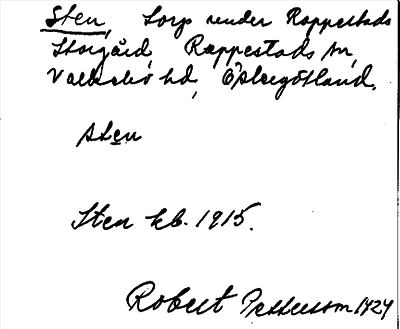 Sten, torp under Rappestads
Storgård, Rappestads sn,
Valkebo hd, Östergötland.
sten
Sten kb. 1915.
Robert Pettersson 1924